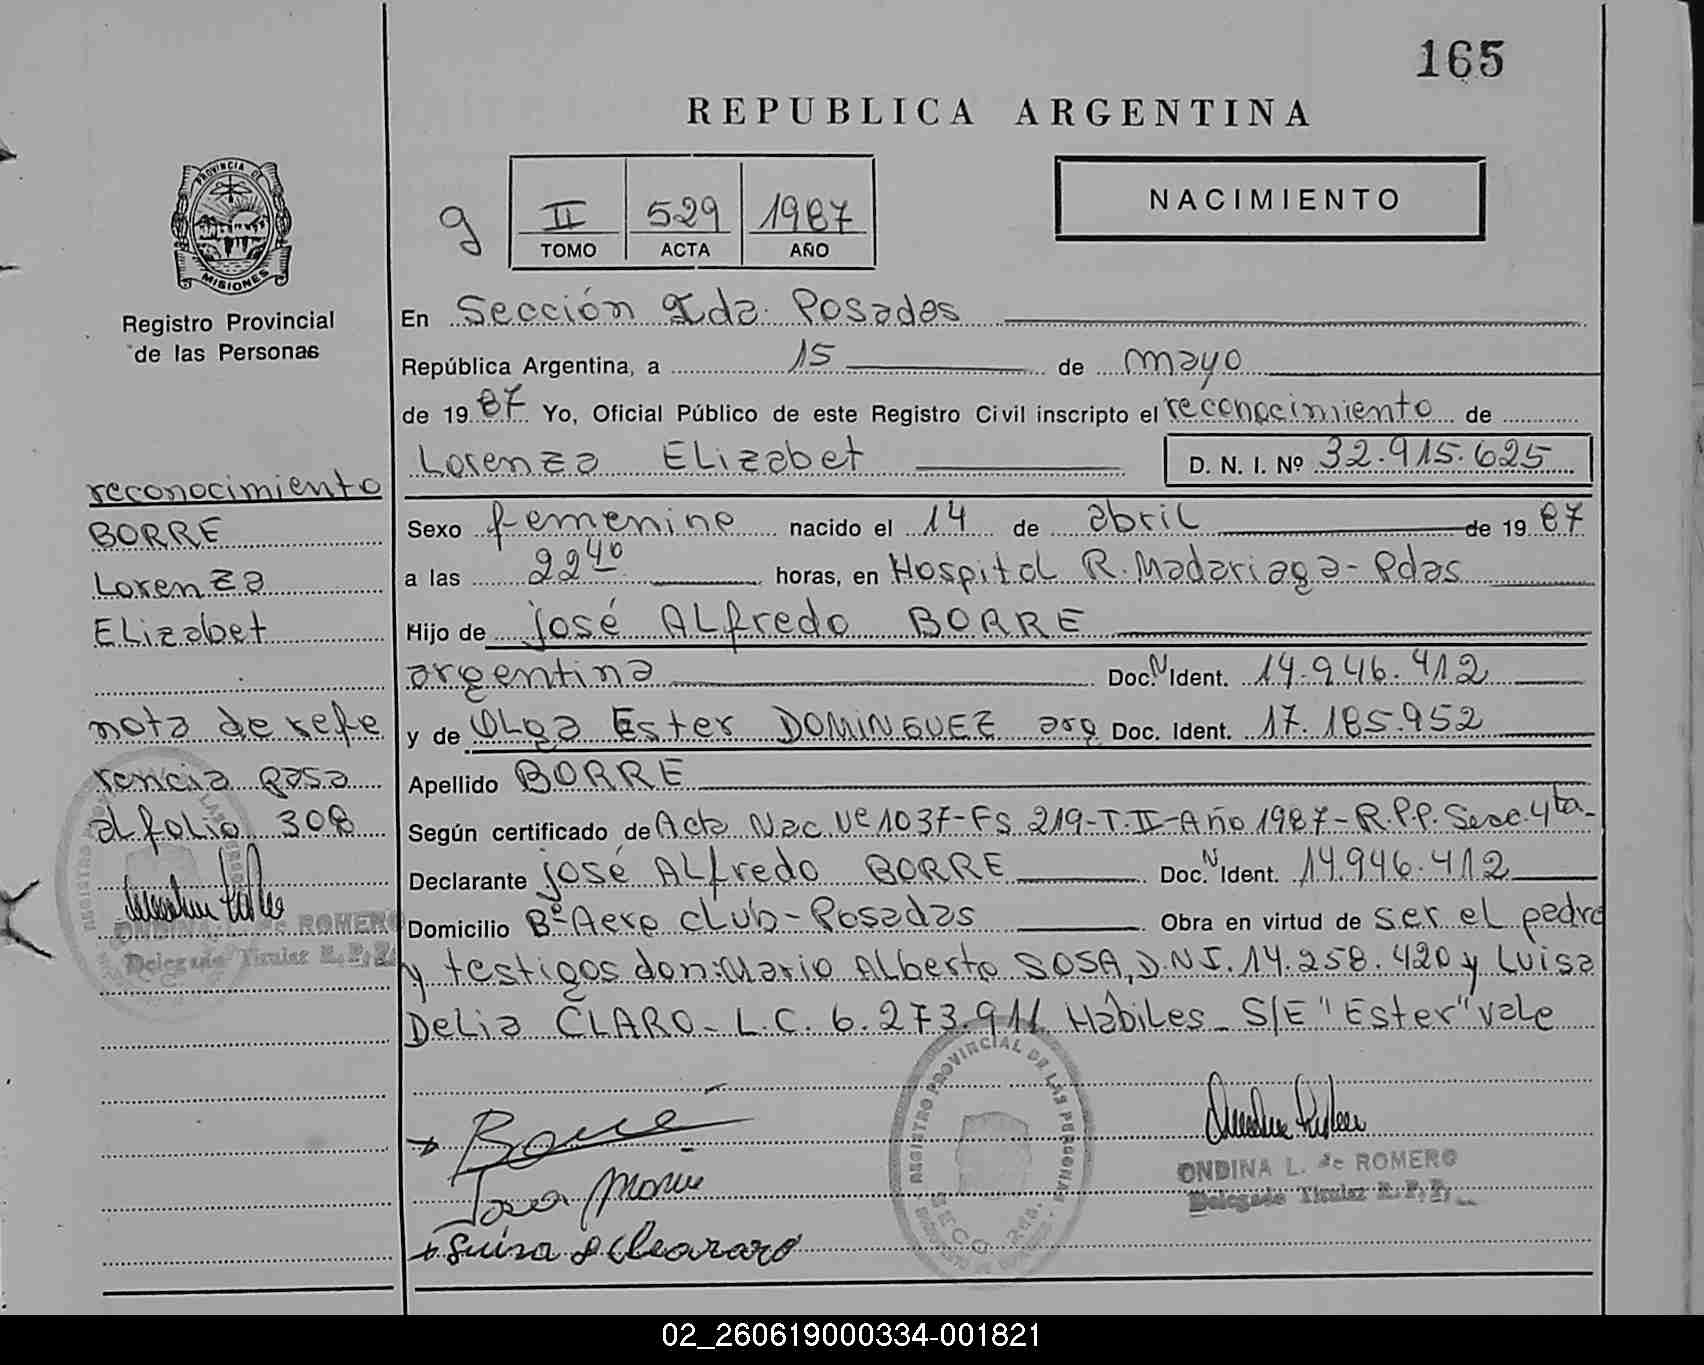 165
REPUBLICA ARGENTINA
PROVINCIA DE MISIONES
Registro Provincial
de las Personas
g
II 529 1987
TOMO ACTA AÑO
NACIMIENTO
En Sección 2da. Posadas
República Argentina, a 15 de mayo
de 1987 Yo, Oficial Público de este Registro Civil inscripto el reconocimiento de
Lorenza ELizabet D. N. I. Nº 32.915.625
Sexo femenino nacido el 14 de abril de 1987
a las 22⁴⁰ horas, en Hospital R. Madariaga - Pdas
Hijo de josé ALfredo BORRE
argentina Doc. N Ident. 14.946.412
y de OLga Ester DOMINGUEZ arg Doc. Ident. 17.185.952
Apellido BORRE
Según certificado de Acta Nac Nº 1037-Fs 219-T.II-Año 1987-R.P.P. Secc. 4ta-
Declarante josé ALfredo BORRE Doc. N Ident. 14.946.412
Domicilio Bº Aero cLub - Posadas Obra en virtud de ser el padre
y testigos don: Mario ALberto SOSA, D.N.I. 14.258.420 y Luisa
DeLia CLARO - L.C. 6.273.911 HábiLes - S/E "Ester" vale
reconocimiento
BORRE
Lorenza
ELizabet
nota de refe
rencia pasa
al folio 308
ONDINA L. de ROMERO
Delegado Titular R. P. P.
Borre
Sosa Mario
REGISTRO PROVINCIAL DE LAS PERSONAS
ONDINA L. de ROMERO
Delegado Titular R. P. P.
Luisa
02_260619000334-001821